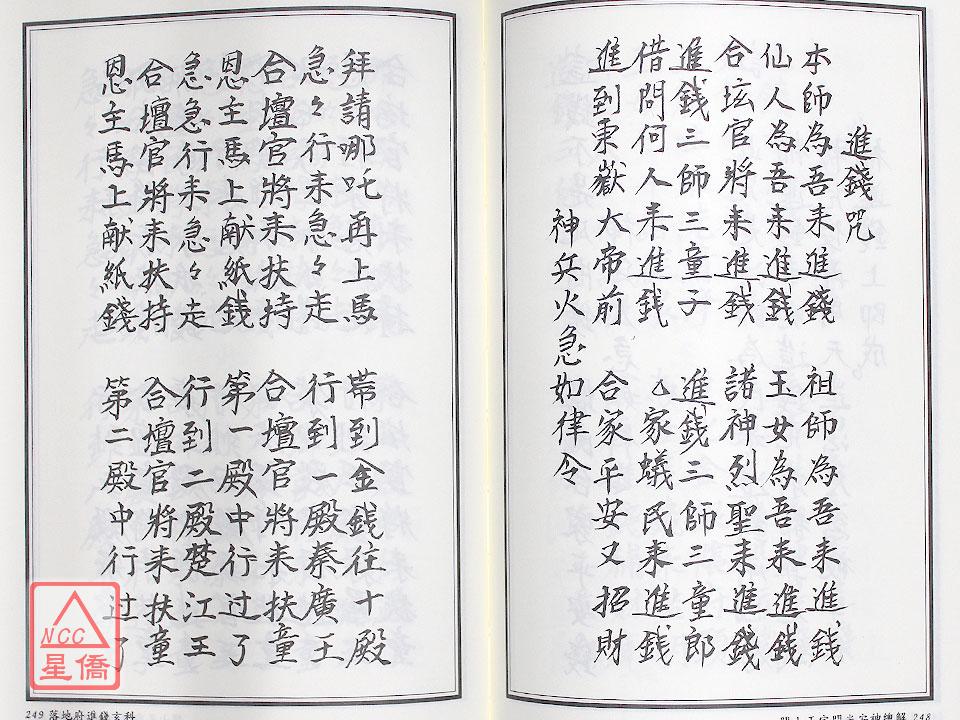 進錢咒
本師為吾来進錢 祖師為吾来進錢
仙人為吾来進錢 玉女為吾来進錢
合坛官將来進錢 諸神烈聖来進錢
進錢三師三童子 進錢三師三童郎
借問何人来進錢 厶家蟻民来進錢
進到東嶽大帝前 合家平安又招財
神兵火急如律令
248
拜請哪吒再上馬 帶到金錢往十殿
急々行来急々走 行到一殿秦廣王
合壇官將来扶持 合壇官將来扶童
恩主馬上献紙錢 第一殿中行过了
急急行来急々走 行到二殿楚江王
合壇官將来扶持 合壇官將来扶童
恩主馬上献紙錢 第二殿中行过了
249 落地府進錢玄科
NCC
星僑